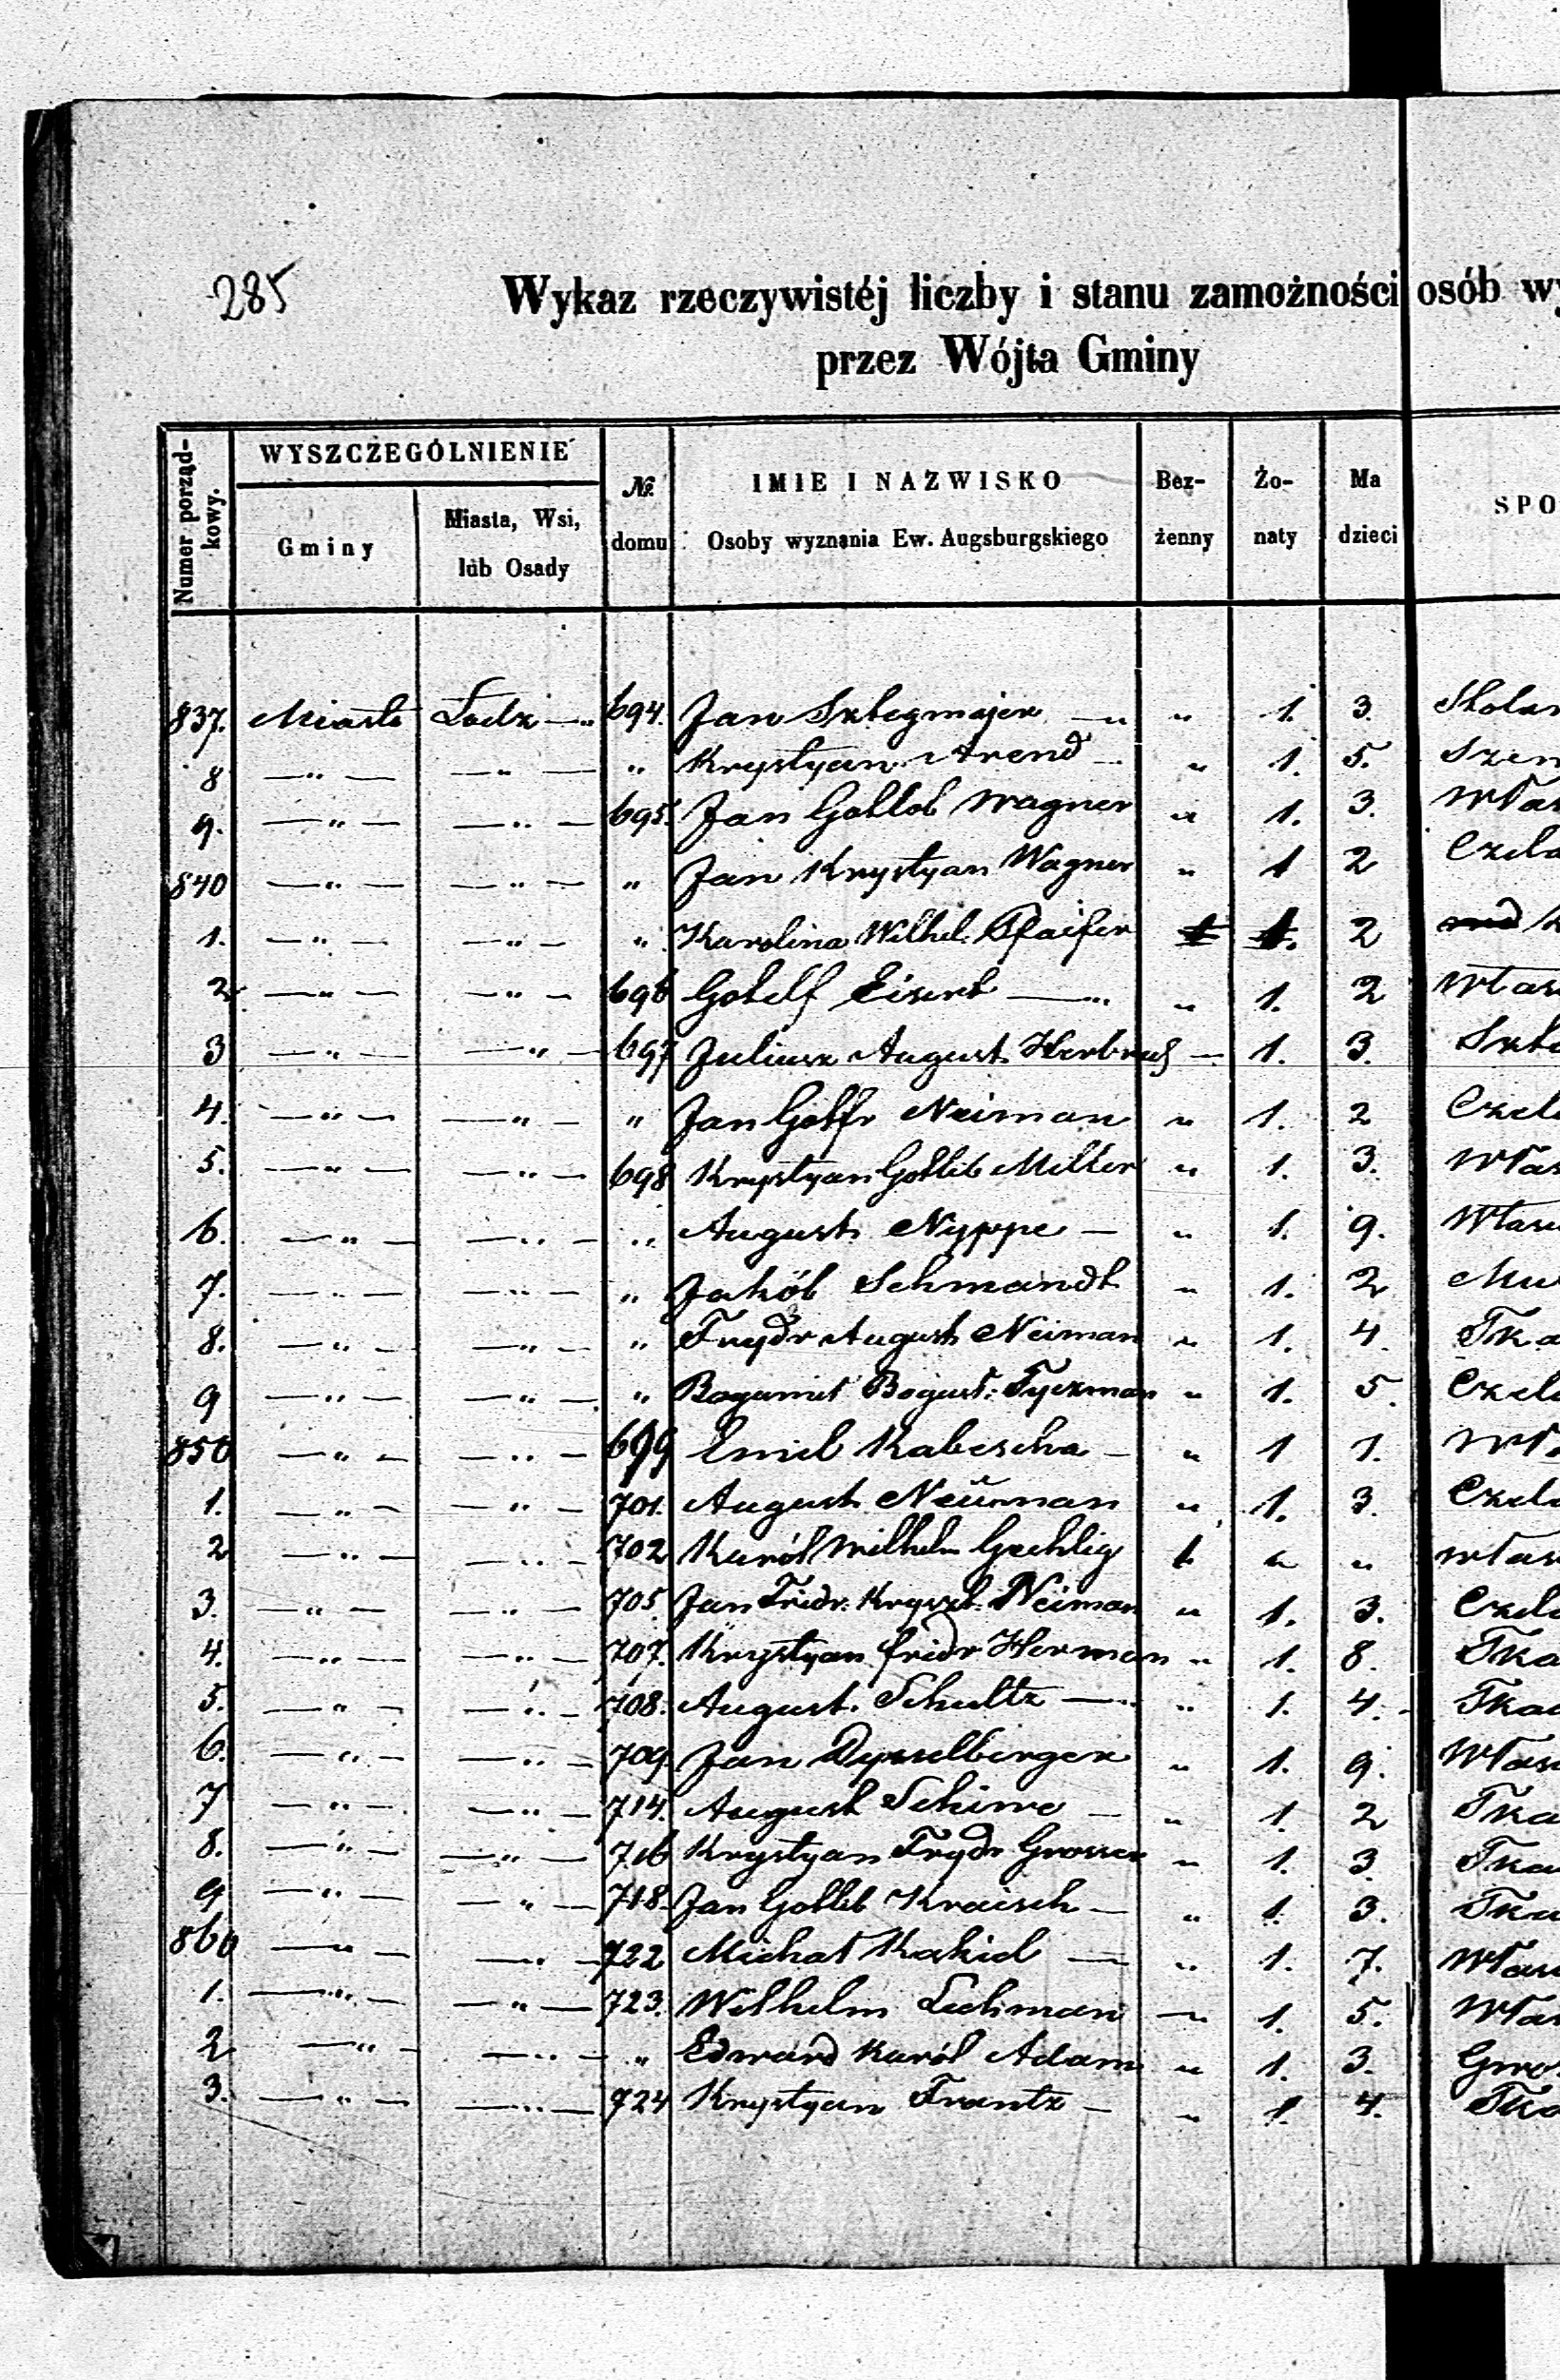 285
Wykaz rzeczywistéj liczby i stanu zamożności osób wy
przez Wójta Gminy
Numer porząd-
kowy.
WYSZCZEGÓLNIENIE
Gminy
Miasta, Wsi,
lub Osady
№
domu
IMIE I NAZWISKO
Osoby wyznania Ew. Augsburgskiego
Bez-
żenny
Żo-
naty
Ma
dzieci
SPO
837. Miasto Łodz —„ 694. Jan Sztegmajer —„ „ 1. 3.
8 —„— —„— „ Krystyan Arend — „ 1. 5. Szew
9. —„— —„— 695. Jan Gottlob Wagner „ 1. 3. Włas
840 —„— —„— „ Jan Krystyan Wagner „ 1 2 Czela
1. —„— —„— „ Karolina Wilhel. Pfaifer 1 1. 2
2. —„— —„— 696 Gotelf Eisert —„ „ 1. 2 Włas
3 —„— —„— 697 Juliusz August Herbrich — 1. 3.
4. —„— —„— „ Jan Gotfr Neiman „ 1. 2 Czela
5. —„— —„— 698 Krystyan Gottlib Miller „ 1. 3. Włas
6. —„— —„— „ August Nyppe — „ 1. 9. Własc
7. —„— —„— „ Jakób Schmandt „ 1. 2 Mu
8. —„— —„— „ Frydr August Neiman „ 1. 4. Tka
9 —„— —„— „ Bogumił Bogusł: Tyczman „ 1. 5. Czela
850 —„— —„— 699 Emil Kabescha — „ 1 1. Wł
1. —„— —„— 701. August Neüman „ 1. 3. Czela
2 —„— —„— 702 Karól Wilhelm Gechlig 1 „ „ Włas
3. —„— —„— 705. Jan Fridr: Kryszt. Neiman „ 1. 3. Czela
4. —„— —„— 707. Krystyan fridr Herman „ 1. 8. Tka
5. —„— —„— 708. August Schultz —„ „ 1. 4. Tkac
6. —„— —„— 709. Jan Dysselberger „ 1. 9. Włas
7 —„— —„— 714. August Schirme — „ 1. 2 Tka
8. —„— —„— 716 Krystyan Frydr Grosser „ 1. 3 Tka
9 —„— —„— 718. Jan Gottlib Kraisch — „ 1. 3. Tka
860 —„— —„— 722 Michał Kahid — „ 1. 7. Włas
1. —„— —„— 723. Wilhelm Lehman —„ 1. 5. Włas
2 —„— —„— „ Edward Karól Adam „ 1. 3.
3. —„— —„— 724 Krystyan Frantz — „ 1. 4. Tka